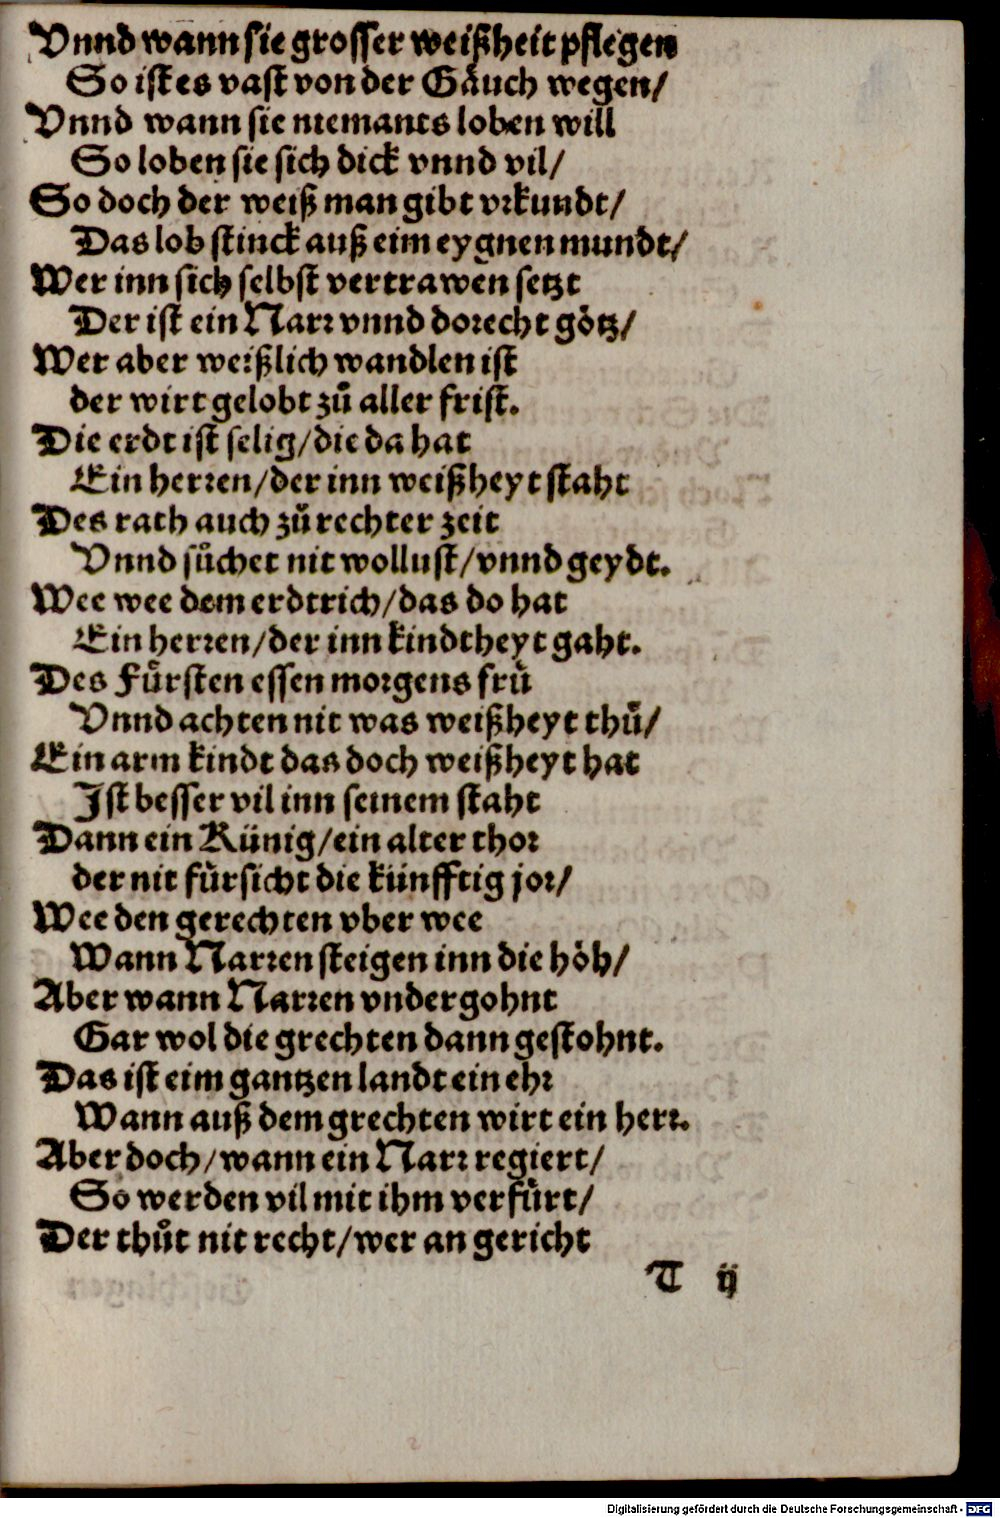 Vnnd wann sie grosser weißheit pflegen
So ist es vast von der Gaͤuch wegen/
Vnnd wann sie niemants loben will
So loben sie sich dick vnnd vil/
So doch der weiß man gibt vrkundt/
Das lob stinck auß eim eygnen mundt/
Wer inn sich selbst vertrawen setzt
Der ist ein Narr vnnd dorecht goͤtz/
Wer aber weißlich wandlen ist
der wirt gelobt zuͦ aller frist.
Die erdt ist selig/die da hat
Ein herren/der inn weißheyt staht
Des rath auch zuͦ rechter zeit
Vnnd suͦchet nit wollust/vnnd geydt.
Wee wee dem erdtrich/das do hat
Ein herren/der inn kindtheyt gaht.
Des Fuͤrsten essen morgens fruͤ
Vnnd achten nit was weißheyt thuͤ/
Ein arm kindt das doch weißheyt hat
Ist besser vil inn seinem staht
Dann ein Künig/ein alter thor
der nit fuͤrsicht die künfftig jor/
Wee den gerechten vber wee
Wann Narren steigen inn die hoͤh/
Aber wann Narren vndergohnt
Gar wol die grechten dann gestohnt.
Das ist eim gantzen landt ein ehr
Wann auß dem grechten wirt ein herr.
Aber doch/wann ein Narr regiert/
So werden vil mit ihm verfuͤrt/
Der thuͦt nit recht/wer an gericht
T ij
Digitalisierung gefördert durch die Deutsche Forschungsgemeinschaft - DFG